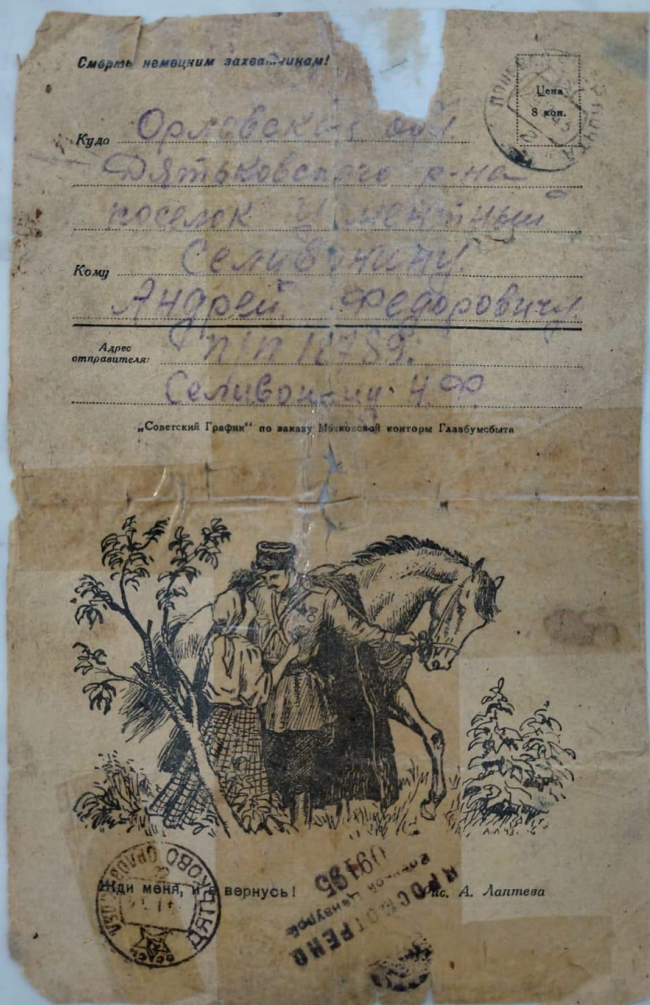 Смерть немецким захватчикам!
Цена
8 коп.
Куда Орловская обл.
Дятьковского р-на
поселок
Кому Селиванину
Андрей Федоровичу
Адрес
отправителя:
Селиванину Н.Ф.
„Советский График“ по заказу Московской конторы Главбумсбыта
А.Л.43.
Жди меня, и я вернусь!
Рис. А. Лаптева
ПРОСМОТРЕНО
Военной Цензурой
09195